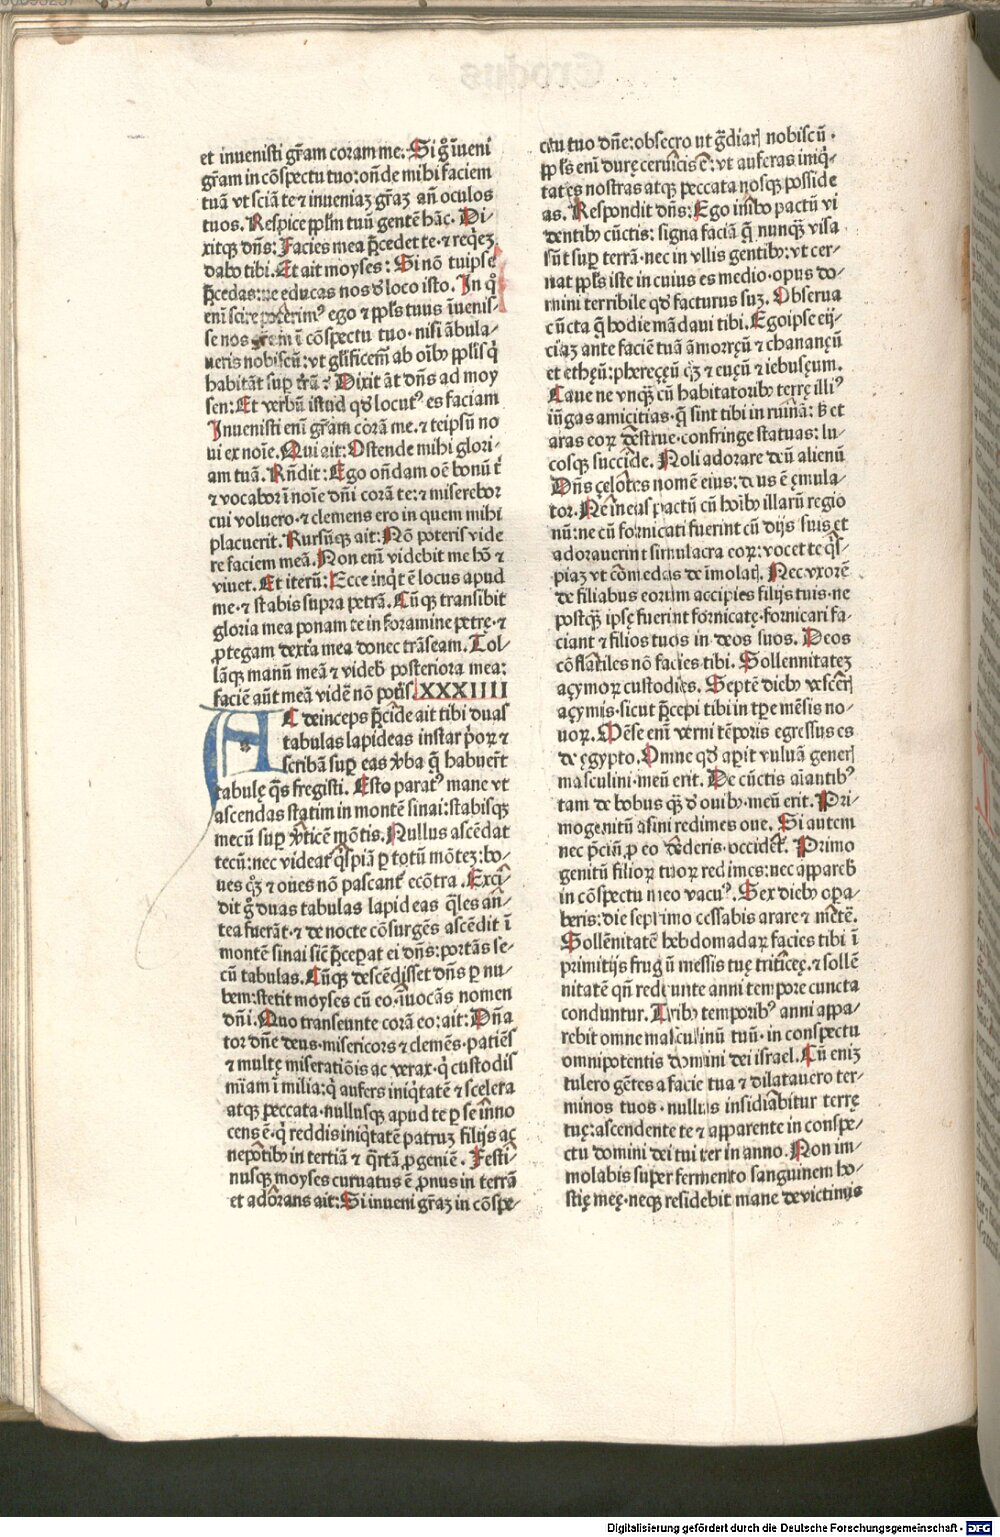 et inuenisti gr̃am coram me. Si gͦ iueni
gr̃am in cõspectu tuo: oñde mihi faciem
tuã vt sciã te ⁊ inueniaʒ gr̃aʒ añ oculos
tuos. Respice pplm̃ tuũ gentẽ hãc. Di⸗
xitqʒ dñs: Facies mea p̃cedet te ⁊ req̇eʒ
dabo tibi. Et ait moyses: Si nõ tu ipse
p̃cedas: ne educas nos ď loco isto. In qͦ
eni scire poterimꝰ ego ⁊ ppl̃s tuus iuenis⸗
se nos gr̃am ĩ cõspectu tuo. nisi ãbula⸗
ueris nobiscũ: vt gl̃ificem̃ ab oĩbꝫ ppl̃is q̇
habitãt suꝑ tr̃ã? Dixit ãt dñs ad moy
sen: Et verbũ istud qď locutꝰ es faciam
Inuenisti eni gr̃am corã me. ⁊ teipsũ no
ui ex noĩe. Qui ait: Ostende mihi glori⸗
am tuã. Rñdit: Ego oñdam oẽ bonũ t̃
⁊ vocabor ĩ noĩe dñi corã te: ⁊ miserebor
cui voluero. ⁊ clemens ero in quem mihi
placuerit. Rursũqʒ ait: Nõ poteris vide
re faciem meã. Non eni videbit me hõ ⁊
viuet. Et iterũ: Ecce inq̇t ẽ locus apud
me. ⁊ stabis supra petrã. Cũqʒ transibit
gloria mea ponam te in foramine petrę. ⁊
ꝓtegam dextˀa mea donec trãseam. Tol⸗
lãqʒ manũ meã ⁊ videb̃ posteriora mea:
faciẽ aũt meã vidẽ nõ potˀis. XXXIIII
AC deinceps p̃cide ait tibi duas
tabulas lapideas instar p̍oꝝ ⁊
scribã suꝑ eas ṽba q̃ habuer̃t
tabulę q̃s fregisti. Esto paratꝰ mane vt
ascendas statim in montẽ sinai: stabisqʒ
mecũ suꝑ ṽticẽ mõtis. Nullus ascẽdat
tecũ: nec videat̃ q̇spiã ꝑ totũ mõteʒ: bo⸗
ues qͦʒ ⁊ oues nõ pascant̃ ecõtra. Exci⸗
dit gͦ duas tabulas lapideas q̃les añ⸗
tea fuerãt. ⁊ de nocte cõsurgẽs ascẽdit ĩ
montẽ sinai sic̃ p̃ceꝑat ei dñs: portãs se⸗
cũ tabulas. Cũqʒ descẽdisset dñs ꝑ nu⸗
bem: stetit moyses cũ eo. iuocãs nomen
dñi. Quo transeunte corã eo: ait: Dña
tor dñe deus. misericors ⁊ clemẽs. patiẽs
⁊ multę miseratiõis ac verax. q̇ custodis
mĩam ĩ milia: q̇ aufers iniq̇tatẽ ⁊ scelera
atqʒ peccata. nullusqʒ apud te ꝑ se inno
cens ẽ. q̇ reddis iniq̇tatẽ patruʒ filijs ac
nepotibꝫ in tertiã ⁊ q̃rtã ꝓgeniẽ. Festi⸗
nusqʒ moyses curuatus ẽ ꝓnus in terrã
et adorans ait: Si inueni gr̃aʒ in cõspe⸗
ctu tuo dñe: obsecro vt g̃diaꝝ nobiscũ.
ppl̃s eni durę ceruicis ẽ: vt auferas iniq̇⸗
tates nostras atqʒ peccata nosqʒ posside
as. Respondit dñs: Ego inibo pactũ vi
dentibꝫ cũctis: signa faciã q̃ nunqʒ̃ visa
sũt suꝑ terrã. nec in vllis gentibꝫ: vt cer⸗
nat ppl̃s iste in cuius es medio. opus do⸗
mini terribile qď facturus suʒ. Obserua
cũcta q̃ hodie mãdaui tibi. Ego ipse eij⸗
ciaʒ ante faciẽ tuã amorręũ ⁊ chananęũ
et ethęũ: phereʒęũ qͦʒ ⁊ euęũ ⁊ iebuseum.
Caue ne vnqʒ̃ cũ habitatoribꝫ terrę illiꝰ
iũgas amicitias. q̃ sint tibi in ruinã: s̃ et
aras eoꝝ destrue. confringe statuas: lu⸗
cosqʒ succide. Noli adorare deũ alienũ
Dñs ʒelotes nomẽ eius: deus ẽ ęmula⸗
tor. Ne ineas pactũ cũ hoĩbꝫ illarũ regio
nũ: ne cũ fornicati fuerint cũ dijs suis et
adorauerint simulacra eoꝝ: vocet te q̇s⸗
piaʒ vt comedas de imolatꝭ. Nec vxorẽ
de filiabus eorum accipies filijs tuis. ne
postqʒ̃ ipsę fuerint fornicatę. fornicari fa⸗
ciant ⁊ filios tuos in deos suos. Deos
cõflatiles nõ facies tibi. Sollennitateʒ
aʒymoꝝ custodies. Septẽ diebꝫ vescerꝭ
aʒymis. sicut p̃cepi tibi in tp̃e mẽsis no⸗
uoꝝ. Mẽse eni verni tẽporis egressus es
de egypto. Omne qď aꝑit vuluã generꝭ
masculini. meũ erit. De cũctis aĩantibꝰ
tam de bobus qʒ̃ d̃ ouibꝫ. meũ erit. Pri⸗
mogenitũ asini redimes oue. Si autem
nec p̃ciũ ꝓ eo dederis. occidet̃. Primo
genitũ filioꝝ tuoꝝ redimes: nec appareb̃
in cõspectu meo vacuꝰ. Sex diebꝫ oꝑa⸗
beris: die septimo cessabis arare ⁊ metẽ.
Sollẽnitatẽ hebdomadaꝝ facies tibi ĩ
primitijs frugũ messis tuę triticeę. ⁊ sollẽ
nitatẽ qñ redeunte anni tempore cuncta
conduntur. Tribꝫ temporibꝰ anni appa⸗
rebit omne masculinũ tuũ. in conspectu
omnipotentis domini dei israel. Cũ eniʒ
tulero gẽtes a facie tua ⁊ dilatauero ter⸗
minos tuos. nullus insidiabitur terrę
tuę: ascendente te ⁊ apparente in conspe⸗
ctu domini dei tui ter in anno. Non im⸗
molabis super fermento sanguinem ho⸗
stię meę. neqʒ residebit mane de victimis
Digitalisierung gefördert durch die Deutsche Forschungsgemeinschaft - DFG